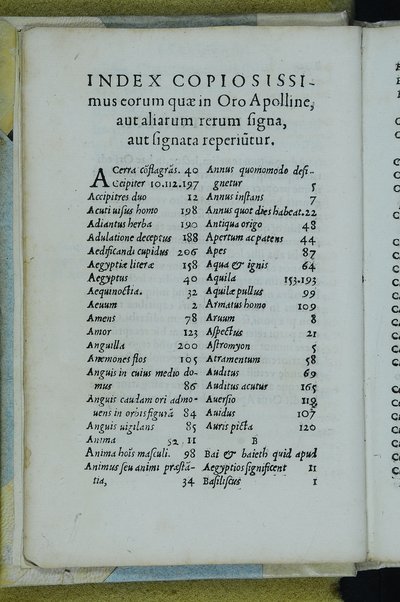 INDEX COPIOSISSI-
mus eorum quæ in Oro Apolline,
aut aliarum rerum signa,
aut signata reperiũtur.
ACerra cõflagrãs. 40
Accipiter 10.112.197
Accipitres duo 12
Acuti uisus homo 198
Adiantus herba 190
Adulatione deceptus 188
Aedificandi cupidus 206
Aegyptiæ literæ 158
Aegyptus 40
Aequinoctia. 32
Aeuum 2
Amens 78
Amor 123
Anguilla 200
Anemones flos 105
Anguis in cuius medio do-
mus 86
Anguis caudam ori admo-
uens in orbis figurã 84
Anguis uigilans 85
Anima 52. 11
Anima hoĩs masculi. 98
Animus seu animi præstã-
tia, 34
Annus quomomodo desi-
gnetur 5
Annus instans 7
Annus quot dies habeat. 22
Antiqua origo 48
Apertum ac patens 44
Apes 87
Aqua & ignis 64
Aquila 153.193
Aquilæ pullus 99
Armatus homo 109
Aruum 8
Aspectus 21
Astromyon 5
Atramentum 58
Auditus 69
Auditus acutus 165
Auersio 119
Auidus 107
Auris picta 120
B
Bai & baieth quid apud
Aegyptios significent 11
Basiliscus 1